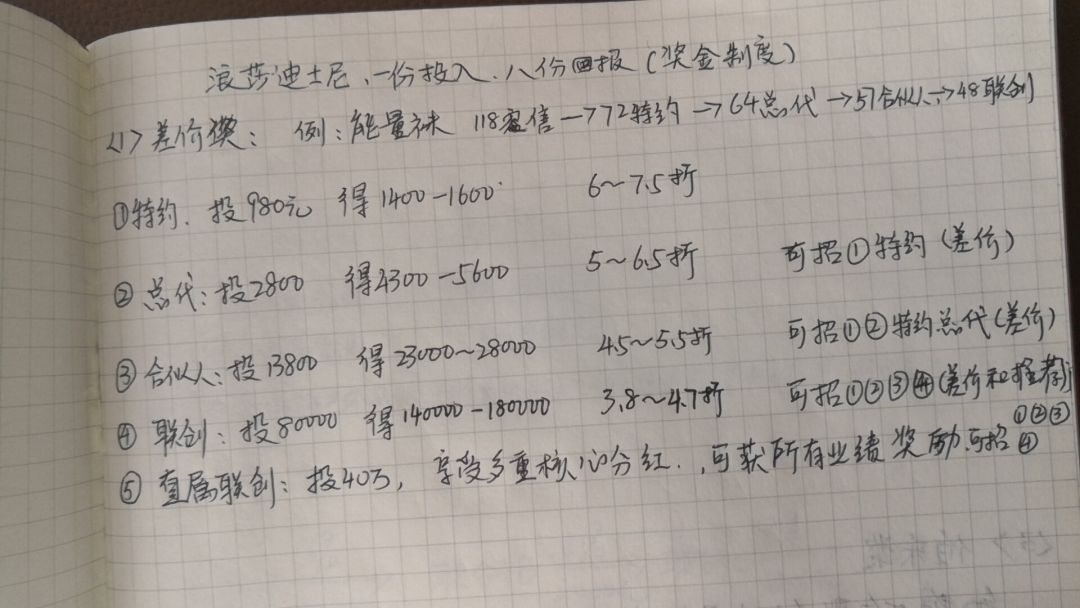 浪莎迪士尼、一份投入、八份回报(奖金制度)
<1>差价奖: 例:能量袜 118零售→72特约→64总代→57合伙人→48联创
①特约. 投980元 得1400-1600 6~7.5折
②总代:投2800 得4300-5600 5~6.5折 可招①特约(差价)
③合伙人:投13800 得23000~28000 45~5.5折 可招①②特约总代(差价)
④联创:投80000 得140000-180000 3.8~4.7折 可招①②③④(差价和推荐)
①②③
⑤直属联创:投40万, 享受多重核心分红.,可获所有业绩奖励.可招④